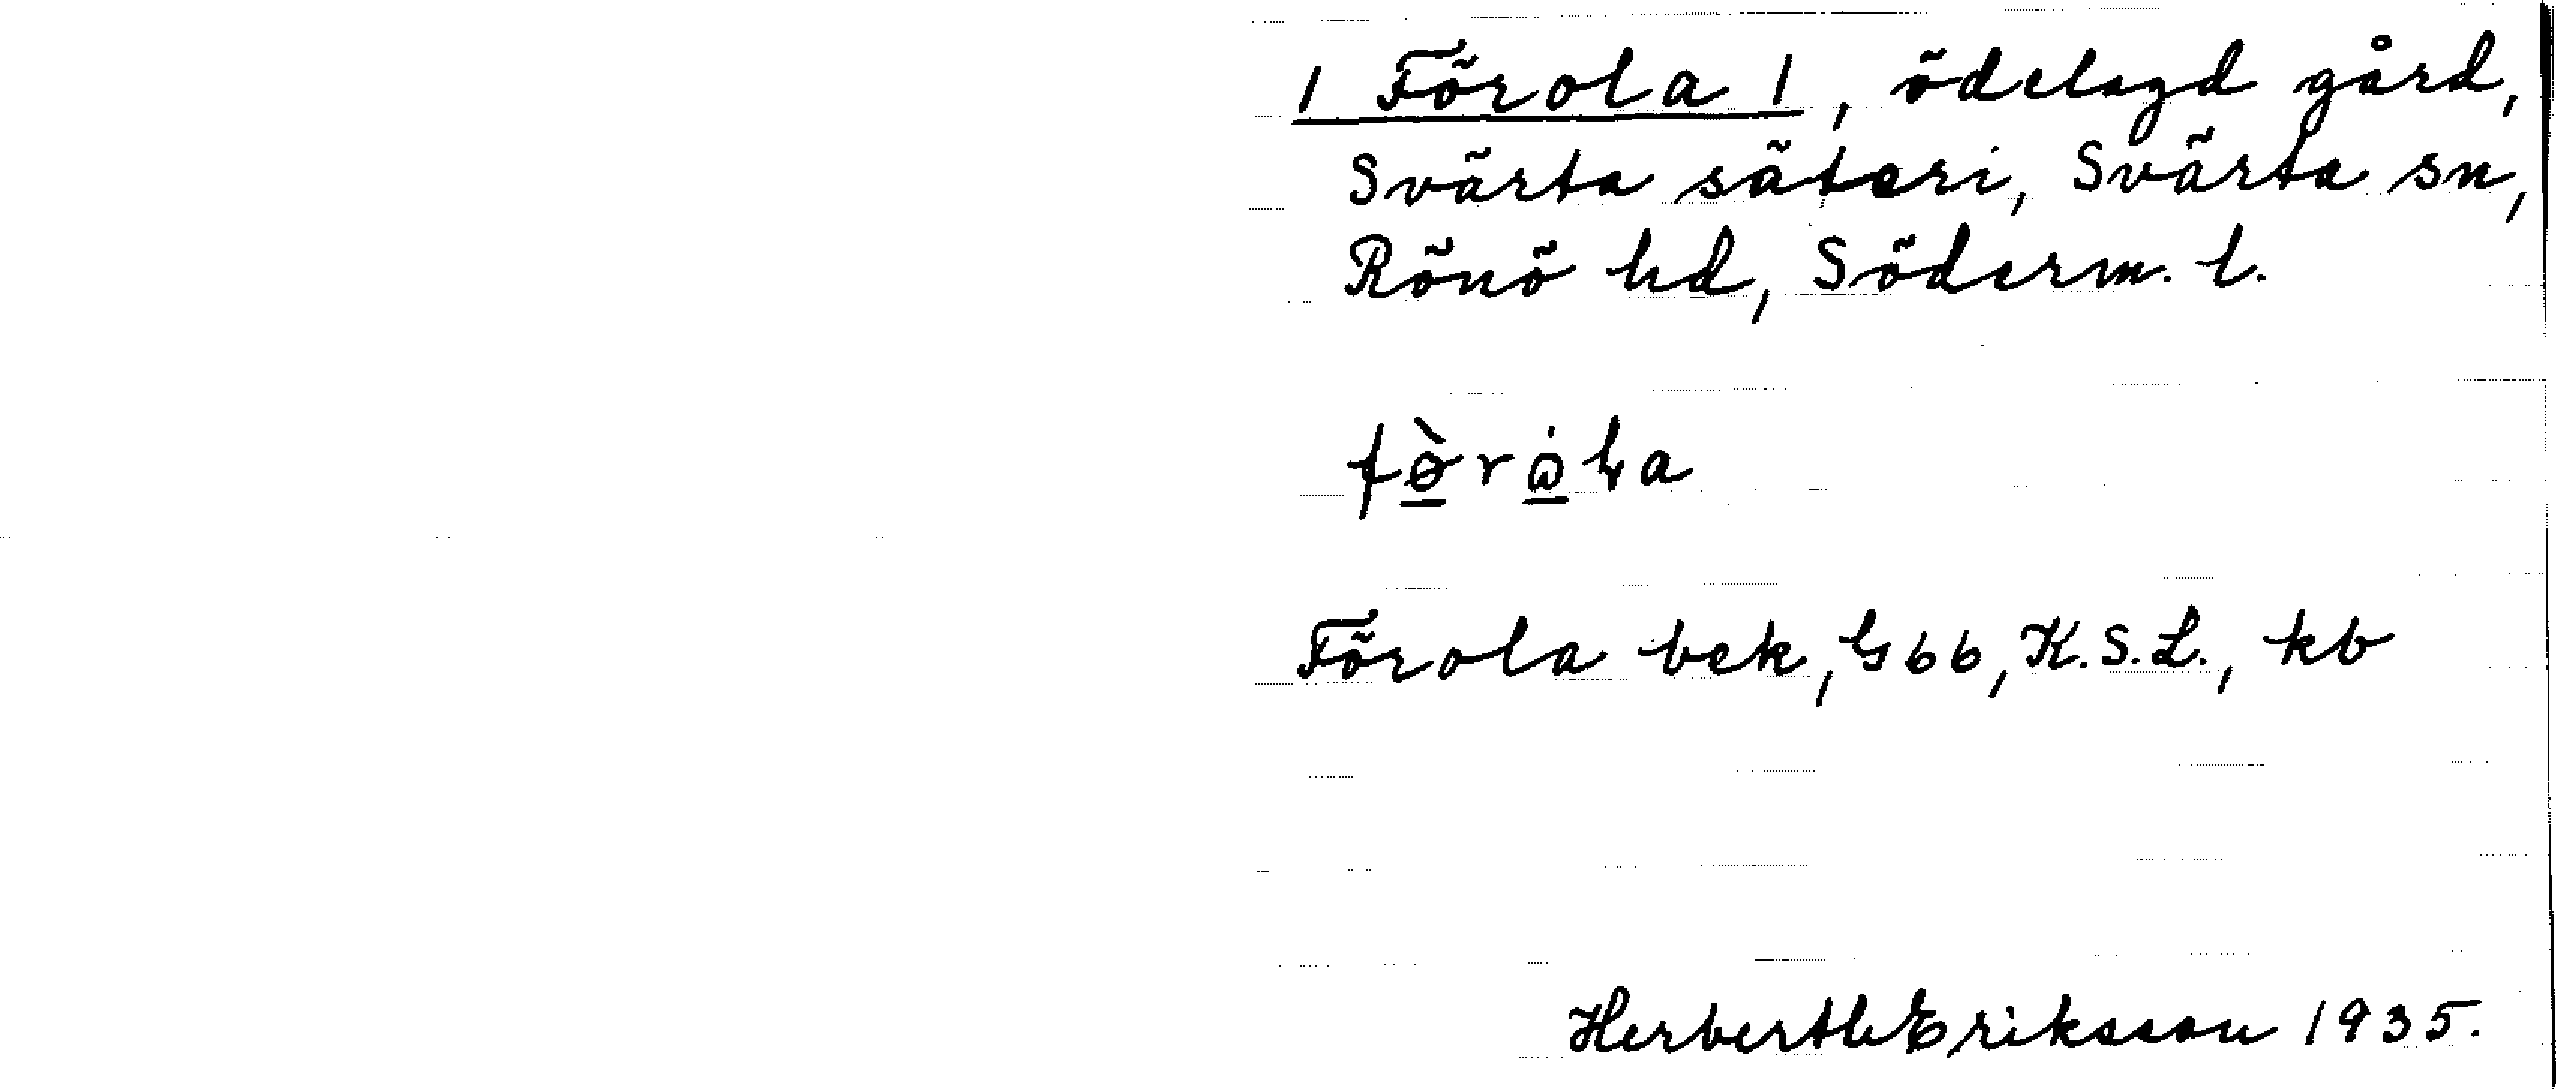 / Förola /, ödelagd gård,
Svärta säteri, Svärta sn,
Rönö hd, Söderm. l.
Förola bek, G66, K.S.L., kb
Herberth Eriksson 1935.